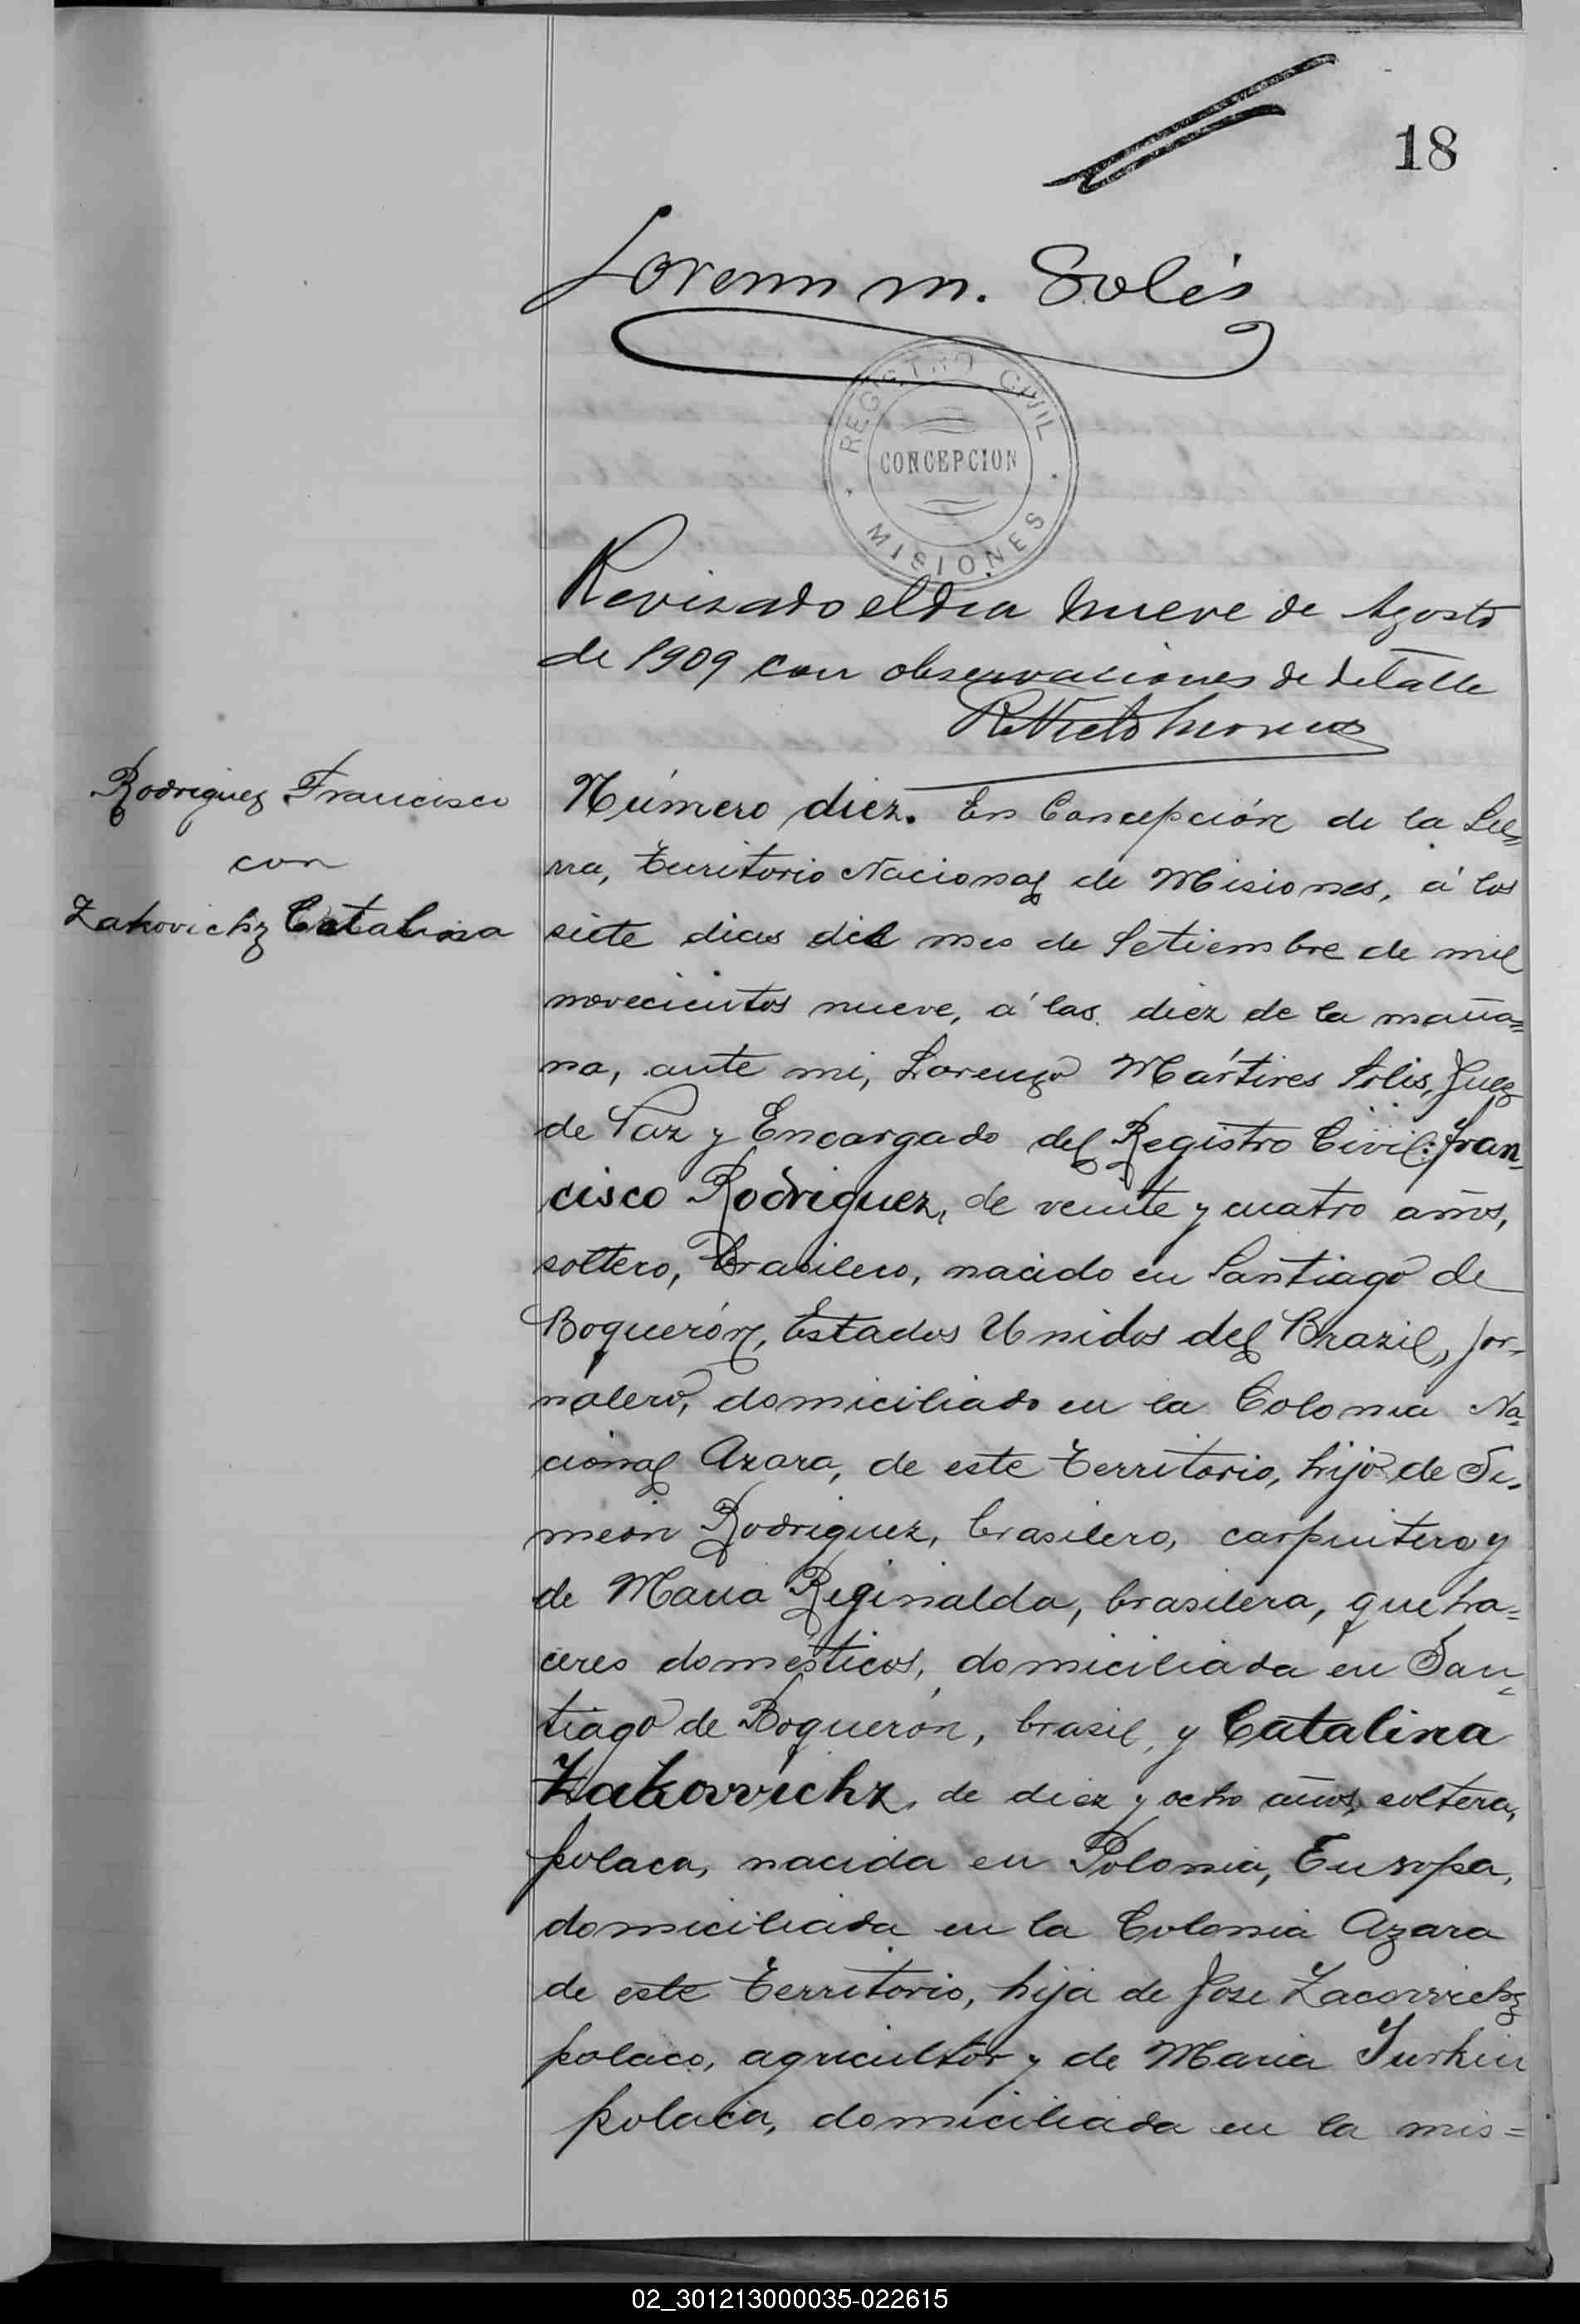 18
Lorenzo M. Solis
REGISTRO CIVIL
CONCEPCION
MISIONES
Revisado el dia nueve de Agosto
de 1909 con observaciones de detalle
Rodriguez Francisco
con
Zakovichz Catalina
Número diez. En Concepción de la Sie-
rra, Territorio Nacional de Misiones, á los
siete dias del mes de Setiembre de mil
novecientos nueve, á las diez de la maña=
na, ante mi, Lorenzo Mártires Solis, Juez
de Paz y Encargado del Registro Civil: Fran-
cisco Rodriguez, de veinte y cuatro años,
soltero, brasilero, nacido en Santiago de
Boquerón, Estados Unidos del Brazil, jor-
nalero, domiciliado en la Colonia Na-
cional Azara, de este Territorio, hijo de Si-
meón Rodriguez, brasilero, carpintero y
de Maria Reginalda, brasilera, queha=
ceres domésticos, domiciliada en San-
tiago de Boquerón, brasil, y Catalina
Zakovvichz, de diez y ocho años, soltera,
polaca, nacida en Polonia, Europa,
domiciliada en la Colonia Azara
de este Territorio, hija de Jose Zacovvichz
polaco, agricultor y de Maria Turkiu
polaca, domiciliada en la mis=
02_301213000035-022615